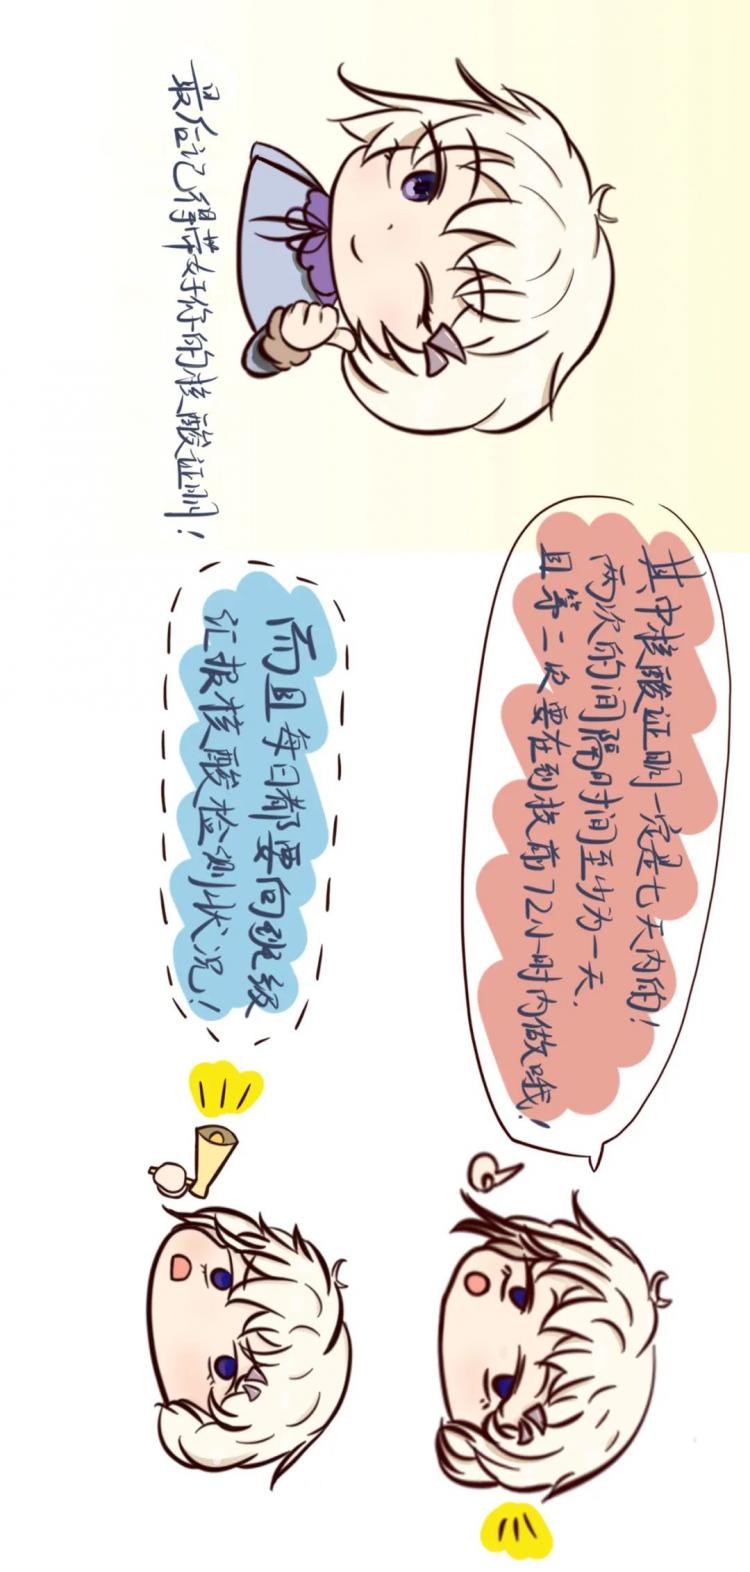 其中核酸证明一定是七天内的!
两次的间隔时间至少为一天.
且第二次要在到校前72小时内做哦!
而且每日都要向班级
汇报核酸检测状况!
最后记得带好你的核酸证明!